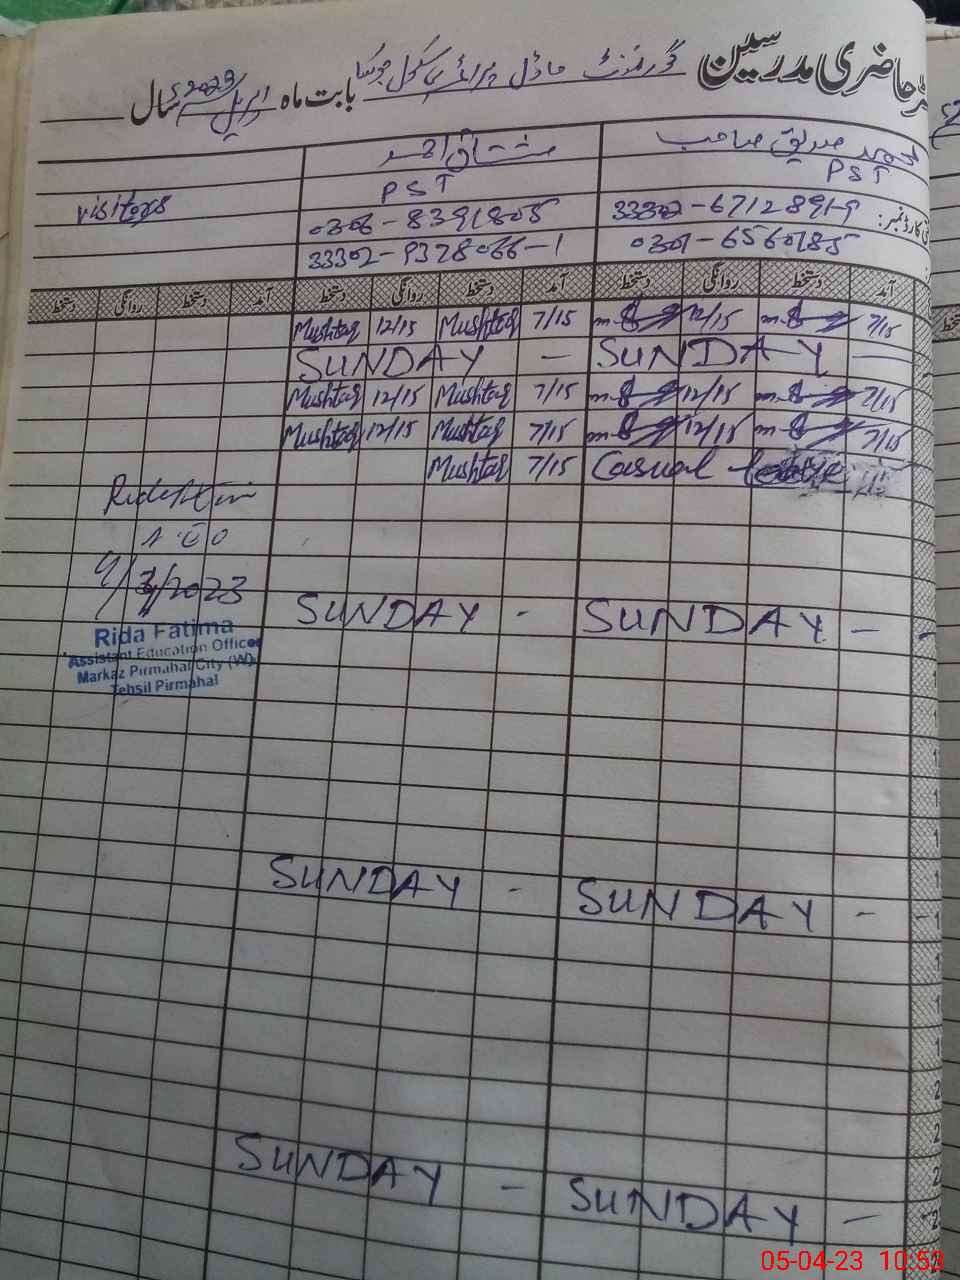 حاضری مدرسین گورنمنٹ ماڈل پرائمری سکول
بابت ماہ اپریل 2023 سال
محمد صدیق صاحب مشتاق احمد
PST PST
33302-6712891-9 0306-8391805 visitors
0301-6560185 33302-9378066-1
آمد دستخط روانگی دستخط آمد دستخط روانگی دستخط آمد دستخط روانگی دستخط
7/15 12/15 7/15 Mushtaq 12/15 Mushtaq
SUNDAY — SUNDAY —
7/15 12/15 7/15 Mushtaq 12/15 Mushtaq
7/15 12/15 7/15 Mushtaq 12/15 Mushtaq
Casual leave 7/15 Mushtaq
SUNDAY - SUNDAY -
Rida Fatima
Assistant Education Officer
Markaz Pirmahal City (W)
Tehsil Pirmahal
SUNDAY - SUNDAY -
SUNDAY - SUNDAY -
05-04-23 10:53